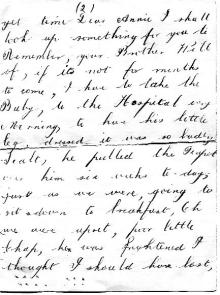 (2)
yet time Dear Annie I shall
look up something for you to
Remember, your Brother Will
of, if its not for months
to come, I have to take the
Baby, to the Hospital evry
Morning, to have his little
leg, dressed it was so badly
Scalt, he pulled the Teapot
over him six weeks to-day,
just as we were, going to
set down to breakfast, Oh
we were upset, poor little
Chap, he was frightened I
thought I should have lost,